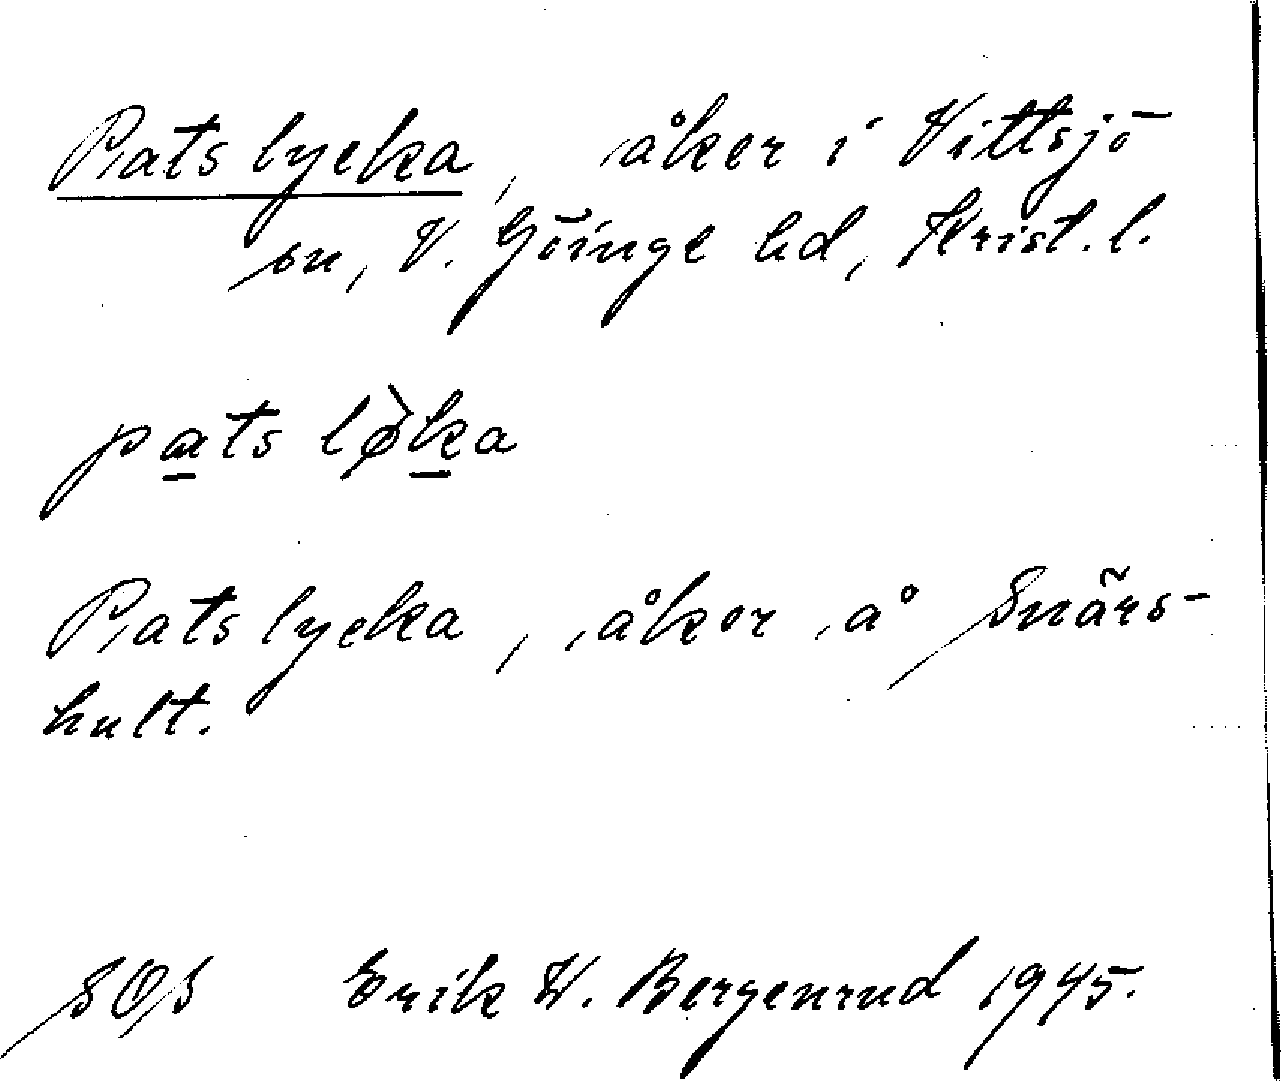 Pats lycka, åker i Vittsjö
sn, V. Göinge hd, Krist. l.
pats lø̀ka
Pats lycka, åker å Snärs-
hult.
SOS Erik W. Bergenrud 1945.